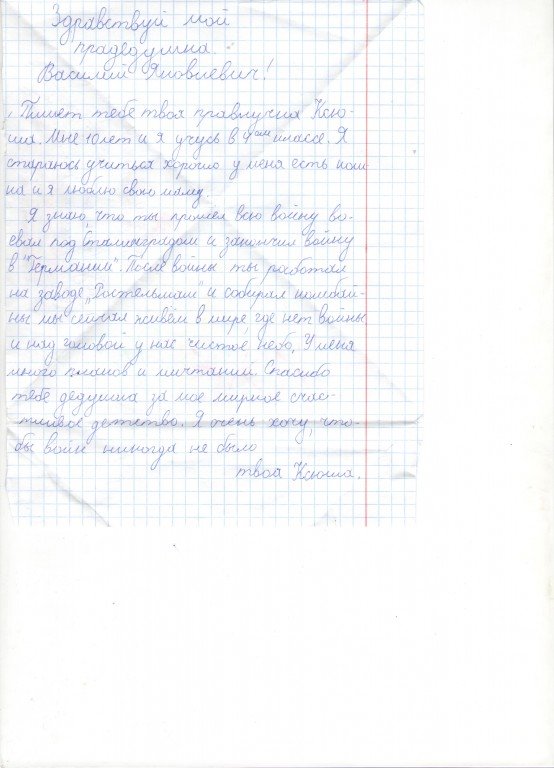 Здравствуй мой
прадедушка
Василий Яковлевич!
Пишет тебе твоя правнучка Ксю-
ша. Мне 10 лет и я учусь в 4ом классе. Я
стараюсь учиться хорошо у меня есть кош
ка и я люблю свою маму.
Я знаю, что ты прошел всю войну во-
евал под Сталинградом и закончил войну
в "Германии". После войны ты работал
на заводе „Ростельмаш" и собирал комбай-
ны мы сейчас живём в мире, где нет войны
и над головой у нас чистое небо. У меня
много планов и мичтаний. Спасибо
тебе дедушка за мое мирное счас-
тливое детство. Я очень хочу, что-
бы войн никогда не было
твоя Ксюша.